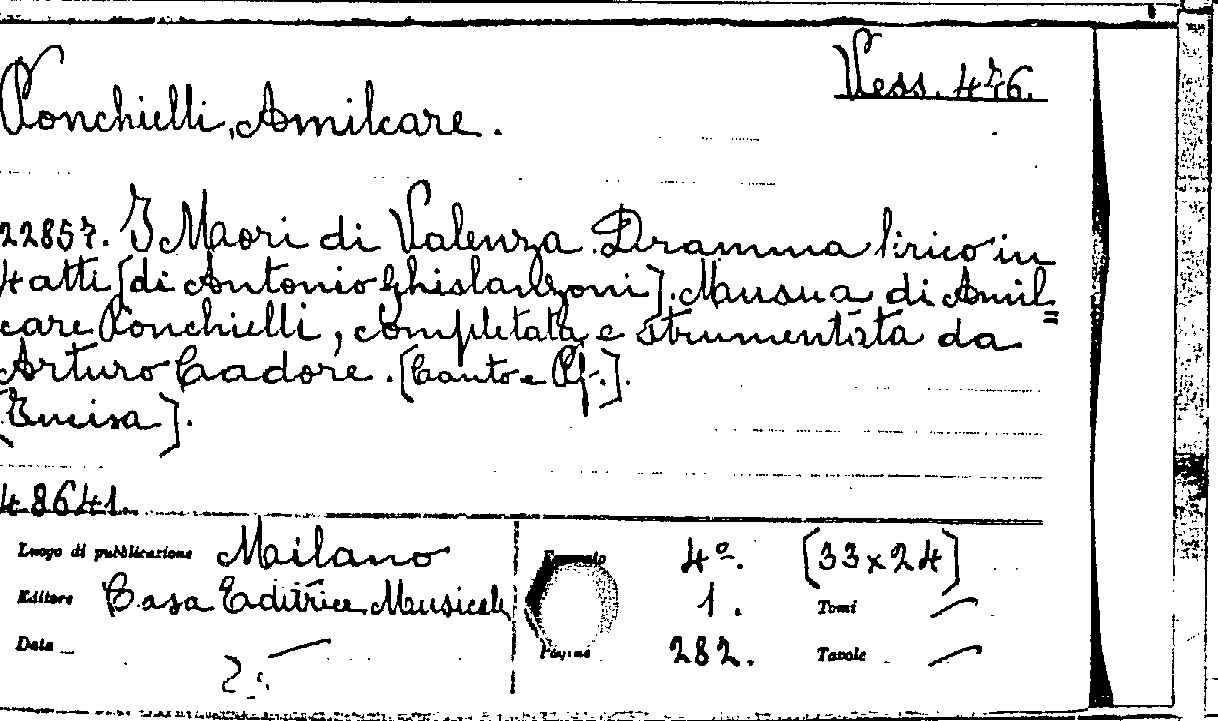 Vess. 476.
Ponchielli, Amilcare.
22857. I Maori di Valenza. Dramma lirico in
4 atti [di Antonio Ghislanzoni]. Musica di Amil=
care Ponchielli, completata e strumentata da
Arturo Cadore. [Canto e Pf.].
[Incisa].
48641.
Luogo di pubblicazione Milano Formato 4º. [33x24]
Editore Casa Editrice Musicale 1. Tomi —
Data — Pagine 282. Tavole —